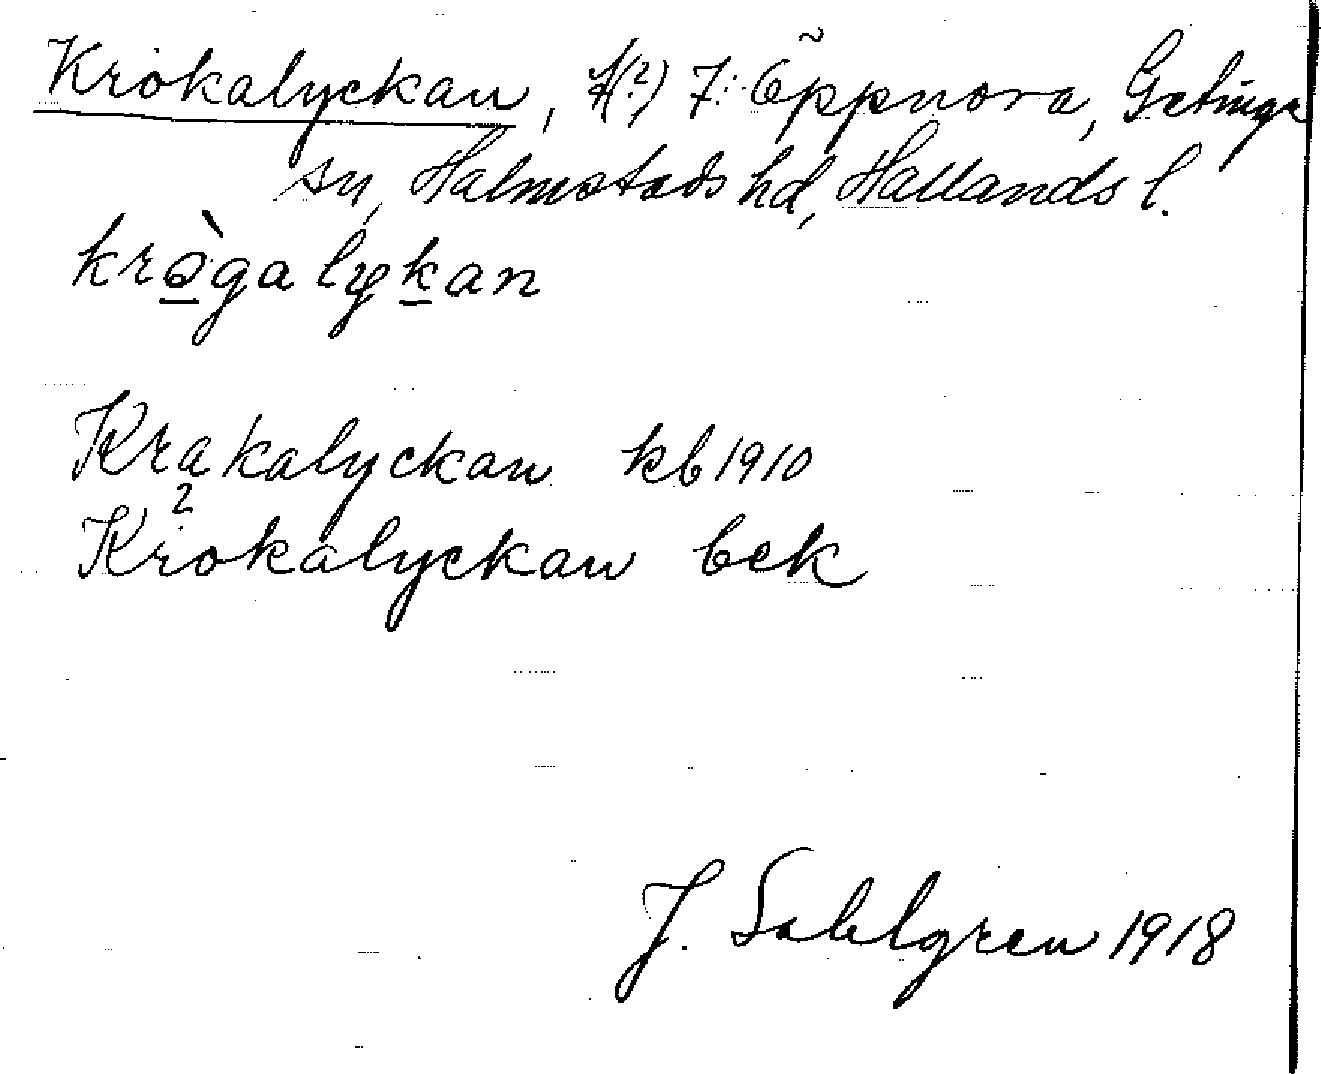 Krokalyckan, A(?) 7: Öppnora, Getinge
sn, Halmstads hd, Hallands l.
krò̲galyk̲an
Krakalyckan kb 1910
?
Krokalyckan bek
J. Sahlgren 1918